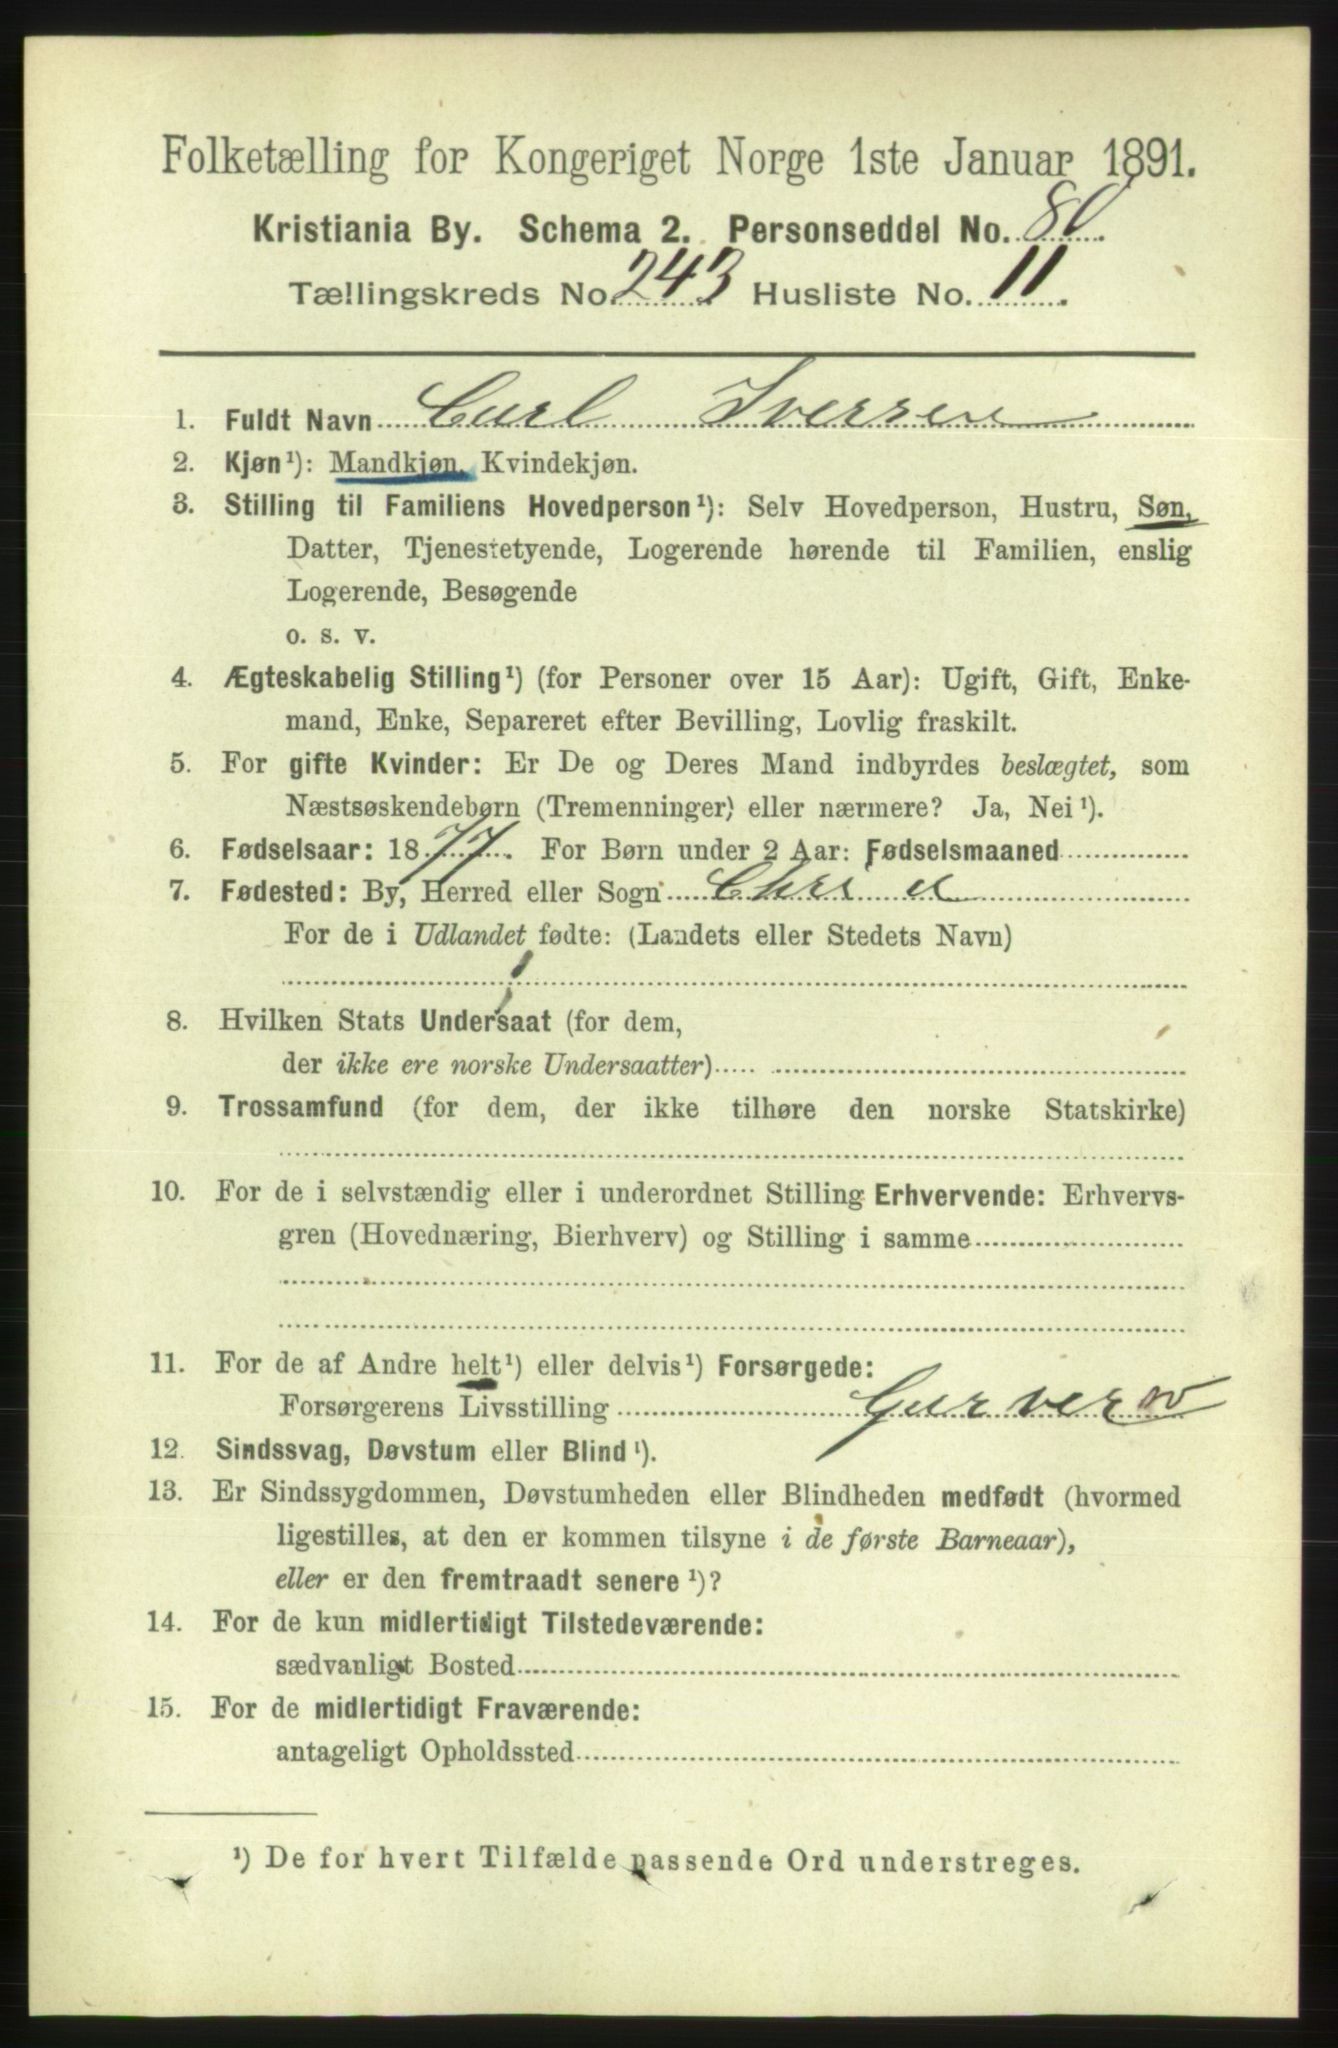 Folketælling for Kongeriget Norge 1ste Januar 1891.
Kristiania By. Schema 2. Personseddel No. 80.
Tællingskreds No. 243 Husliste No. 11.
1. Fuldt Navn Carl Iversen
2. Kjøn¹): Mandkjøn, Kvindekjøn.
3. Stilling til Familiens Hovedperson¹): Selv Hovedperson, Hustru, Søn,
Datter, Tjenestetyende, Logerende hørende til Familien, enslig
Logerende, Besøgende
o. s. v.
4. Ægteskabelig Stilling¹) (for Personer over 15 Aar): Ugift, Gift, Enke-
mand, Enke, Separeret efter Bevilling, Lovlig fraskilt.
5. For gifte Kvinder: Er De og Deres Mand indbyrdes beslægtet, som
Næstsøskendebørn (Tremenninger) eller nærmere? Ja, Nei¹).
6. Fødselsaar: 1877. For Børn under 2 Aar: Fødselsmaaned
7. Fødested: By, Herred eller Sogn Chria
For de i Udlandet fødte: (Landets eller Stedets Navn)
8. Hvilken Stats Undersaat (for dem,
der ikke ere norske Undersaatter)
9. Trossamfund (for dem, der ikke tilhøre den norske Statskirke)
10. For de i selvstændig eller i underordnet Stilling Erhvervende: Erhvervs-
gren (Hovednæring, Bierhverv) og Stilling i samme
11. For de af Andre helt¹) eller delvis¹) Forsørgede:
Forsørgerens Livsstilling Garver
12. Sindssvag, Døvstum eller Blind¹).
13. Er Sindssygdommen, Døvstumheden eller Blindheden medfødt (hvormed
ligestilles, at den er kommen tilsyne i de første Barneaar),
eller er den fremtraadt senere¹)?
14. For de kun midlertidigt Tilstedeværende:
sædvanligt Bosted
15. For de midlertidigt Fraværende:
antageligt Opholdssted
¹) De for hvert Tilfælde passende Ord understreges.